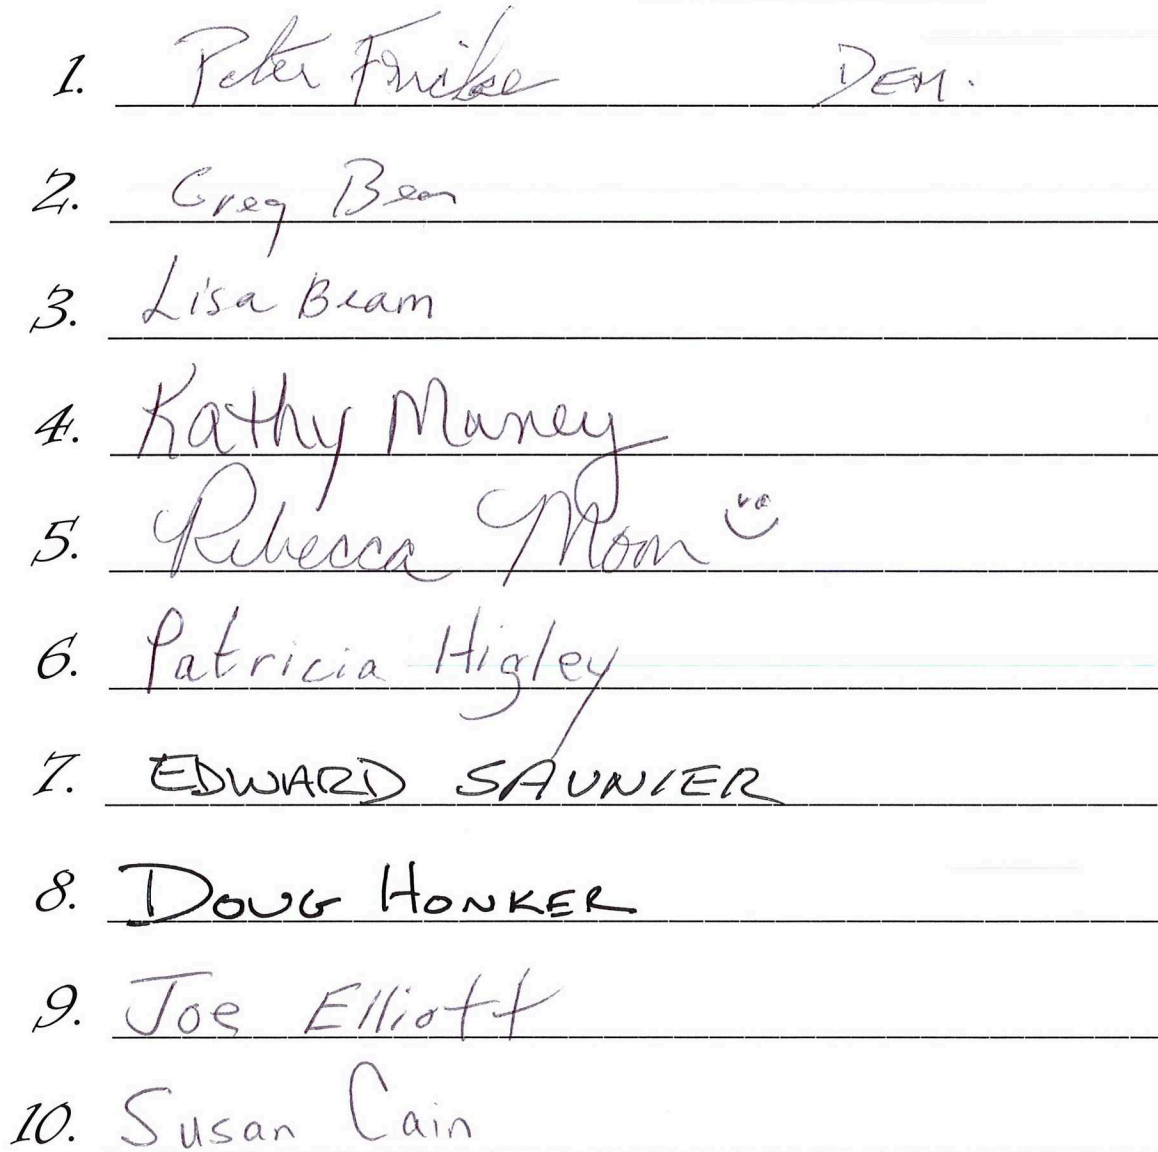 1. Peter Fricke DEM.
2. Greg Bean
3. Lisa Beam
4. Kathy Maney
5. Rebecca Moon
6. Patricia Higley
7. EDWARD SAUNIER
8. DOUG HONKER
9. Joe Elliott
10. Susan Cain